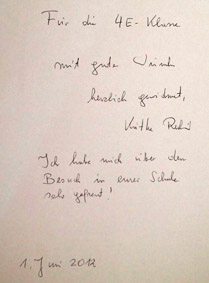 Für die 4E-Klasse
mit guten Wünschen
herzlich gewidmet,
Käthe
Ich habe mich über den
Besuch in eurer Schule
sehr gefreut!
1. Juni 2012